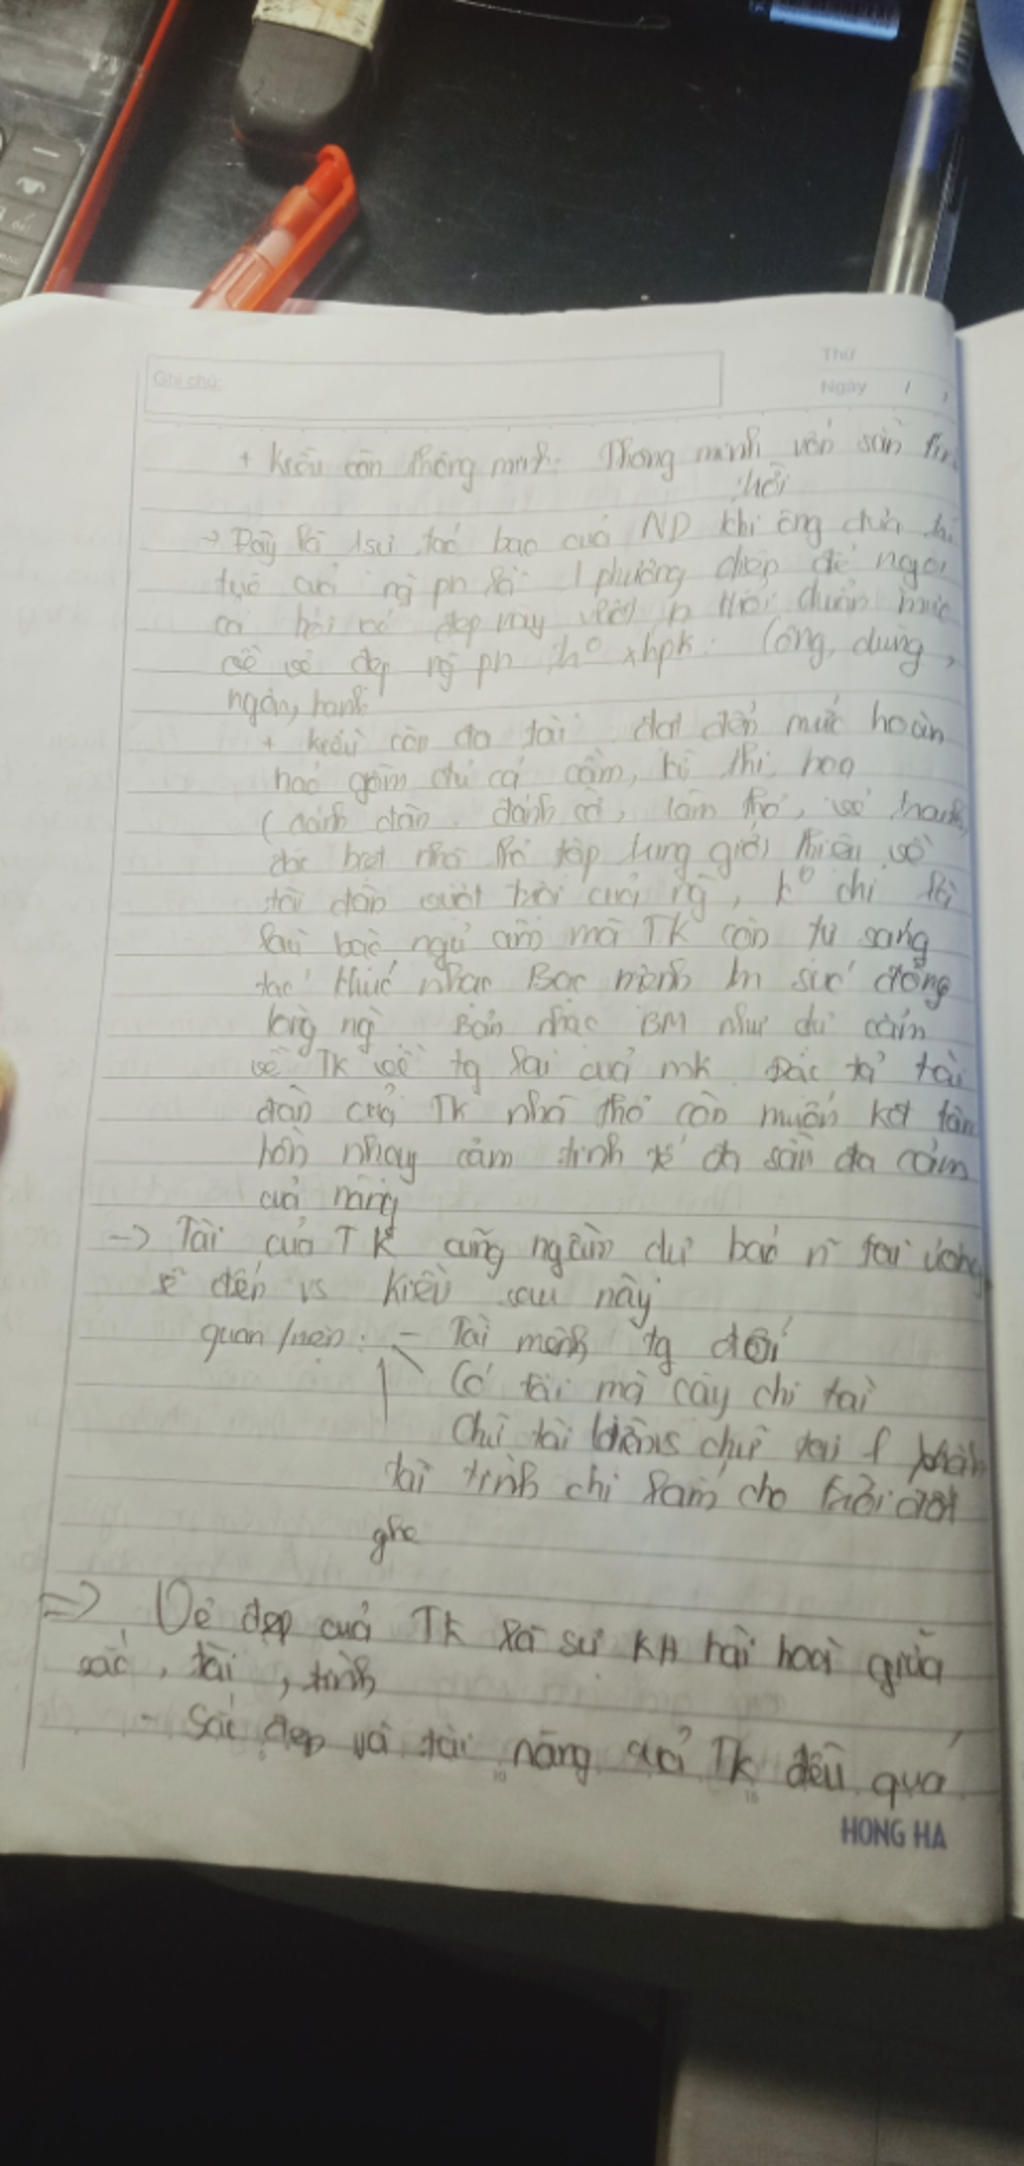 Ghi chú:
Thứ
Ngày / /
+ Kiều còn thông minh. Thông minh vốn sẵn
trời
→ Đây là 1 sự táo bạo của ND khi ông đưa
của ng pn là 1 phương diện để ngợi
ca bởi vẻ đẹp này vượt tiêu chuẩn mực
về vẻ đẹp ng pn xhpk: Công, dung,
ngôn, hạnh
+ Kiều còn đa tài đạt đến mức hoàn
hảo gồm đủ cả cầm, kì, thi, hoạ
(đánh đàn, đánh cờ, làm thơ, vẽ tranh)
đặc biệt nhà thơ tập trung giới thiệu về
tài đàn vượt trội của ng, k° chỉ là
lầu bậc ngũ âm mà TK còn tự sáng
tác khúc nhạc Bạc mệnh làm sức động
lòng ng Bản nhạc BM như dự cảm
về TK về tg lai của mk. Đặc tả tài
đàn của TK nhà thơ còn muốn kđ tâm
hồn nhạy cảm tinh tế đa sầu đa cảm
của nàng
→ Tài của TK cũng ngầm dự báo n tai ương
sẽ đến vs Kiều sau này
quan niệm: - Tài mệnh tg đối
Có tài mà cậy chi tài
Chữ tài liền vs chữ tai 1 vần
tài tình chi lắm cho trời đất
ghe
=> Vẻ đẹp của TK là sự KH hài hoà giữa
sắc, tài, tình
- Sắc đẹp và tài năng của TK đều quá
10
15
HONG HA